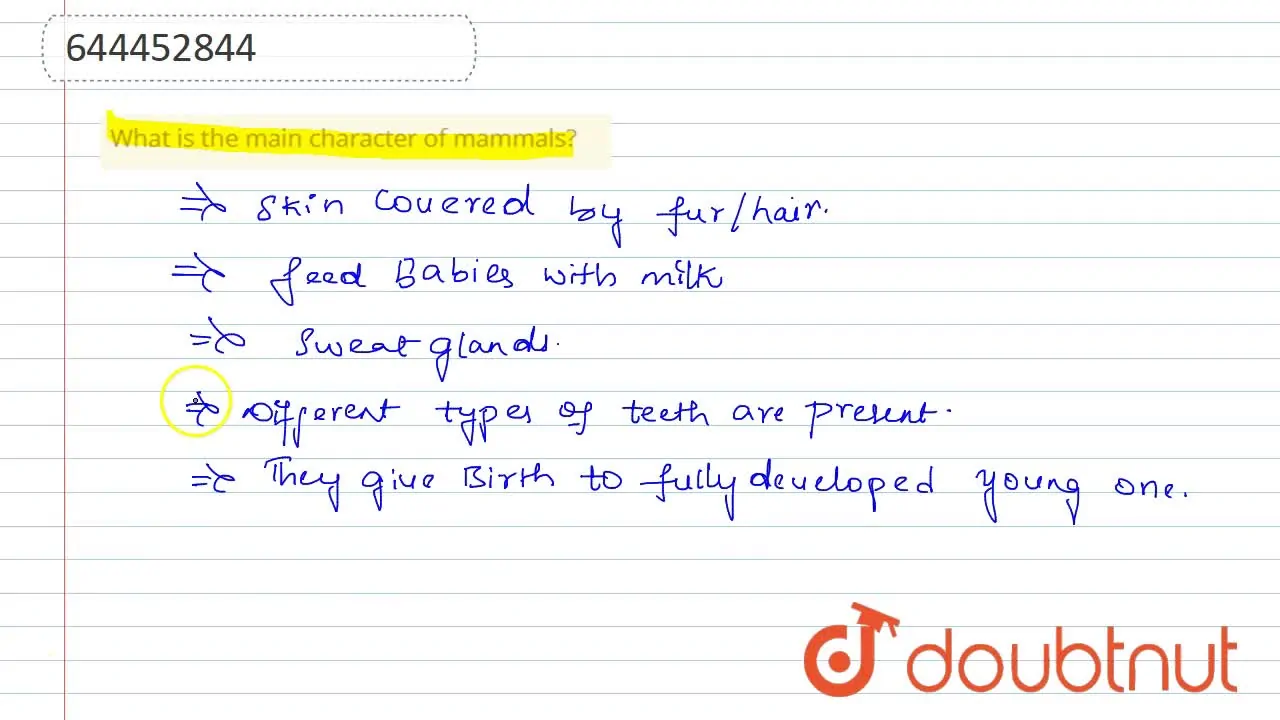 644452844
What is the main character of mammals?
⇒ Skin covered by fur/hair.
⇒ feed Babies with milk
⇒ Sweat glands.
⇒ Different types of teeth are present.
⇒ They give Birth to fully developed young one.
doubtnut